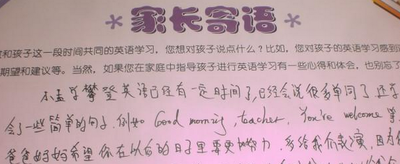 家长寄语
和孩子这一段时间共同的英语学习，您想对孩子说点什么？比如，您对孩子的英语学习感到
期望和建议等。当然，如果您在家庭中指导孩子进行英语学习有一些心得和体会，也别忘了
攀登英语已经有一定时间了，已经会说很多单词了，还学
会了一些简单的句子，例如 Good morning, teacher, You're welcome 等
爸爸妈妈希望你在以后的日子里要更加努力，多给我们表演，因为